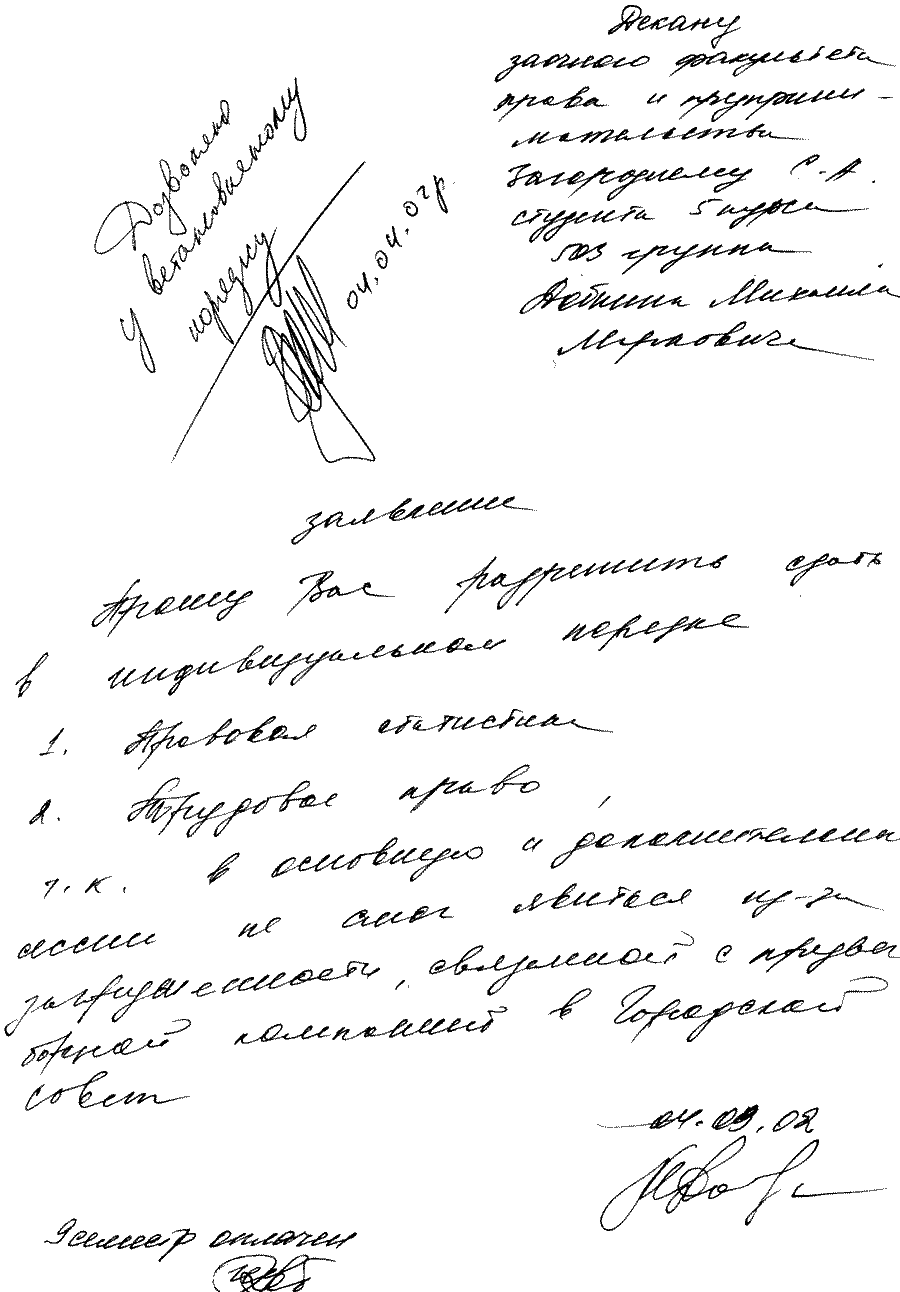 Декану
заочного факультета
права и предприни-
мательства
Загороднему С. А.
студента 5 курса
503 группа
Добкина Михаила
Марковича
Дозволено
у встановленому
порядку
04.04.02р.
заявление
Прошу Вас разрешить сдать
в индивидуальном порядке
1. Правовая статистика
2. Трудовое право,
т.к. в основную и дополнительн
сессии не смог явиться из-за
загруженности, связанной с предвы
борной компанией в Городской
совет
04.03.02
9 семестр оплачен